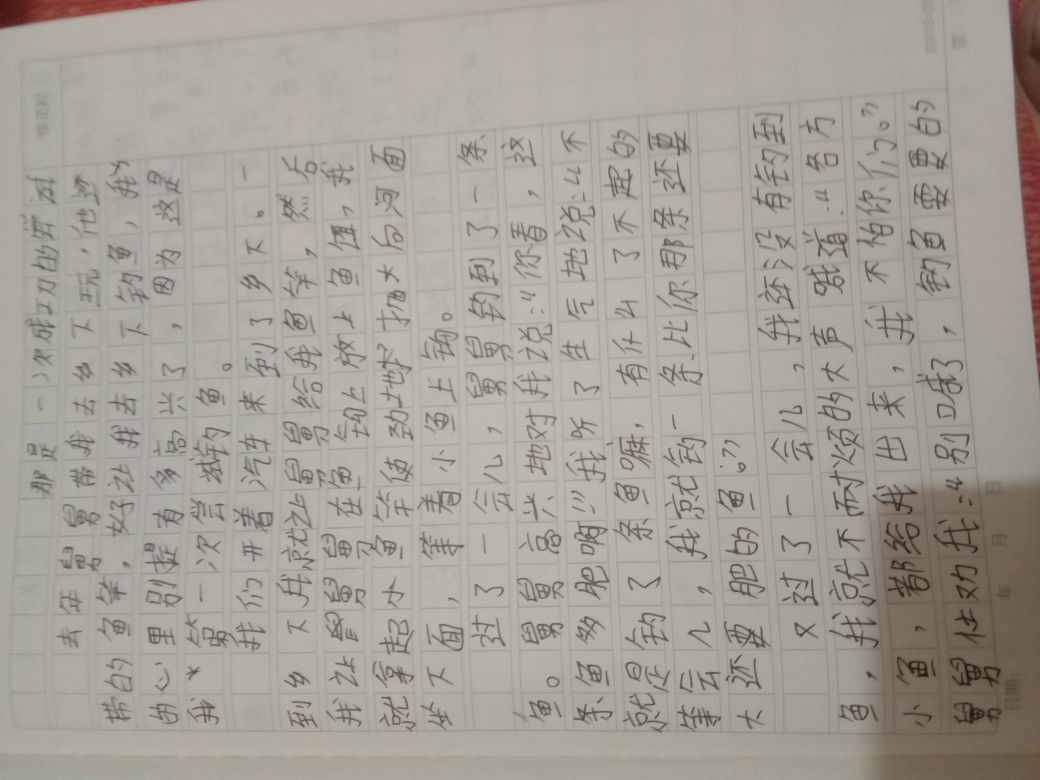 那是一次成功的尝试
去年舅舅带我去乡下玩，他还
带的鱼竿。好让我去乡下钓鱼，我
的心里别提有多高兴了，因为这是
我第一次尝试钓鱼。
我们开着汽车来到了乡下。一
到乡下我就让舅舅给我鱼竿，然后
我让舅舅在鱼钩上放上鱼饵，我
就拿起小鱼竿使劲地抽大向河面
坐下面，等着小鱼上钩。
过了一会儿，舅舅钓到了一条
鱼。舅舅高兴地对我说：“你看，这
条鱼多肥啊！”我听了生气地说：“不
就是钓了条鱼嘛，有什么了不起的
等会儿，我就钓一条比你那条还要
大还要肥的鱼？”
又过了一会儿，我还没有钓到
鱼，我就不耐烦的大声喊道：“各方
小鱼，都给我出来，我不怕你们。”
舅舅仕劝我：“别喊了，钓鱼要要的
日期： 年 月 日